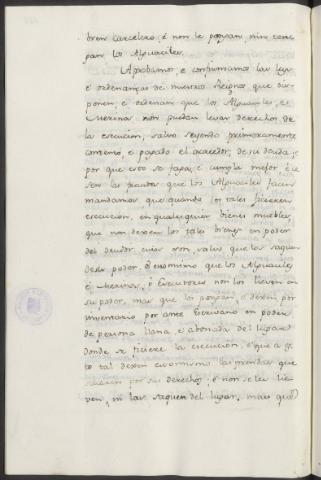 bren carcelero, é non le pongan, nin conc
pan los Alguaciles.
Aprobamos, e confirmamos las leys
é ordenanzas de nuestros Reynos que dis-
ponen, é ordenan que los Alguaciles, é
Merinos non puedan levar derechos de
la execucion, salvo seyendo primeramente
contento, e pagado el acreedor, de su deuda, é
por que esto se faga, é cumpla mejor, é ce
sen los fraudes que los Alguaciles facen
mandamos que quando los tales ficieren
execucion, en qualesquier bienes muebles,
que non dexen los tales bienes en poder
del deudor, cuios son, salvo que los saquen
de su poder, é en somismo que los Alguaciles
é Merinos, ó Executores non los lleven en
su poder, mas que los pongan, é dexen por
inventario por ante Escribano en poder
de persona llana, é abonada del lugar
donde se ficiere la execucion, é que a es
to tal dexen ansimismo las prendas que
ficieren por sus derechos, é non se les lie
ven, ni las saquen del lugar, mas que